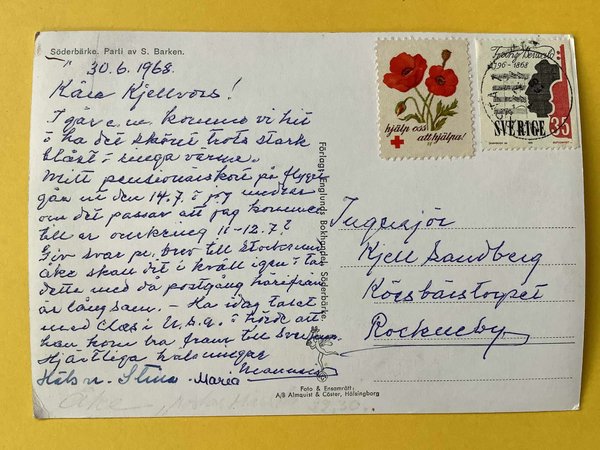 Söderbärke. Parti av S. Barken.
" 30.6.1968.
Kära Kjellvors!
I går e.m. kommo vi hit
i ha det skönt trots stark
blåst i inga varma.
Mitt pensionärskort på flyget
går in den 14.7. i jag undrar
om det passar att jag kommer
till er omkring 11-12.7?
Giv svar pr. brev till Stockholm
åke skall dit i kväll igen i tar
detta med då postgång härifrån
är långsam. – Ha idag talat
med Claes i U.S.A. i hörde att
han kom bra fram till
Hjärtliga hälsningar
Häls n. Stina - Maria
Förlag: Englunds Bokhandel, Söderbärke.
Foto & Ensamrätt:
A/B Almquist & Cöster, Hälsingborg
hjälp oss
att hjälpa!
Franz Berwald
1796-1868
SVERIGE 35
Ingenjör
Kjell Sandberg
Körsbärstorpet
Rockneby